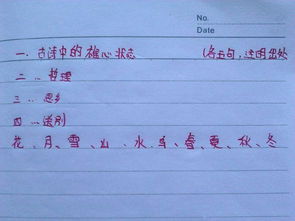 No.
Date
一、古诗中的雄心状态 (各五句,注明出处
二 .. 哲理
三 .. 思乡
四 .. 送别
花、月、雪、山、水、鸟、春、夏、秋、冬